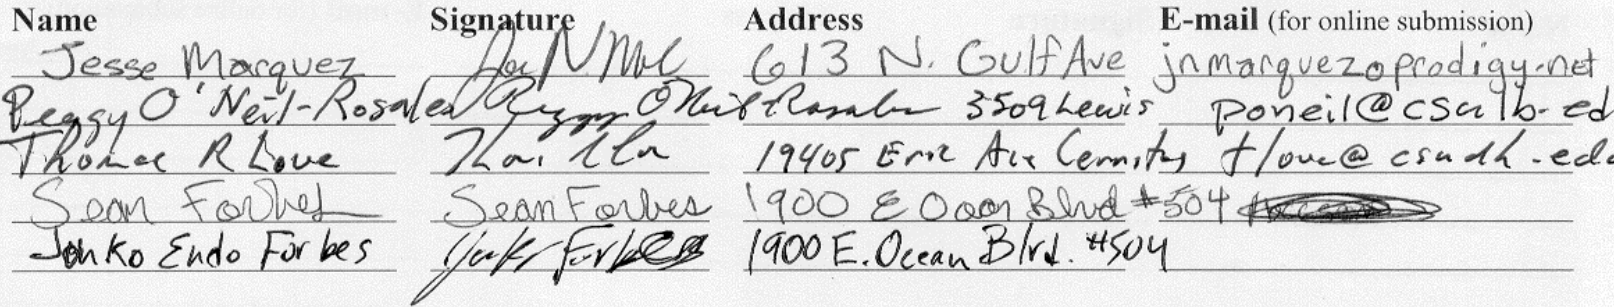 Name Signature Address E-mail (for online submission)
Jesse Marquez 613 N. Gulf Ave jnmarquez@prodigy.net
Peggy O'Neil-Rosales Peggy O'Neil-Rosales 3509 Lewis poneil@csulb.ed
Thomas R Love 19405 Eric Ave Cerritos tlove@csudh.edu
Sean Forbes Sean Forbes 1900 E Ocean Blvd #504
Endo Forbes Forbes 1900 E. Ocean Blvd. #504